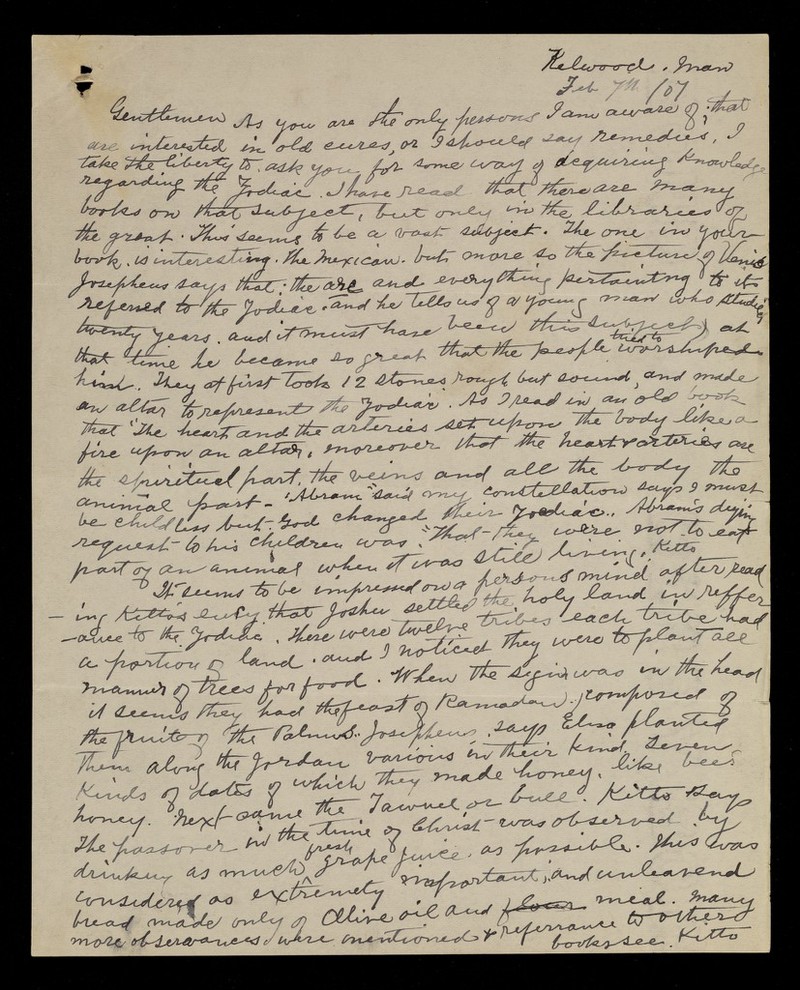 Kelwood. Man
Feb 7th /07
Gentlemen As you are the only persons I am aware of, that
are interested in old cures, or I should say remedies, I
take the liberty to ask you for some way of acquiring Knowledge
regarding the Zodiac. I have read that there are many
books on that subject, but only in the libraries of
the great. This seems to be a vast subject. The one in your
book, is interesting. The Mexican. but more so the picture of Venic
Josepheus says that; the arc and everything pertaintng to it
referred to the Zodiac. and he tells us of a young man who studied
twenty years. and it must have been this subject, at
that time he became so great that the people tried to worshiped
him. They at first took 12 stones, rough but sound, and made
an altar to represent the Zodiac. As I read in an old book
that "The heart and the arteries set upon the body like a
fire upon an altar, moreover that the heart & arteries are
the spiritual part, the veins and all the body the
animal part - "Abram" said my constellation says I must
be childless but God changed their Zoediac.. Abram's dying
request to his children was "That they were not to eat
part of an animal when it was still living. Kitto
It seems to be impressed on a persons mind after read
-ing Kitto's that Joshu settled the holy land in reffer
-ance to the Zodiac. There were twelve tribes each tribe had
a portion of land. and I noticed they were to plant all
manner of trees for food. When the sign was in the head
it seems they had the feast of Ramadan. composed of
the fruits of the Palms. Josepheus, says Elisa planted
them along the Jordan various in their kind, seven
kinds of dates of which they made honey, like bees
honey. Next came the or bull. Kitto says
The passover in the time of Christ was observed by
drinking as much fresh grape juice as possible. This was
considered as extremety important, and unleavend
bread made only of Olive oil and flour meal. Many
more observances were mentioned & referrance to others
books see. Kitto